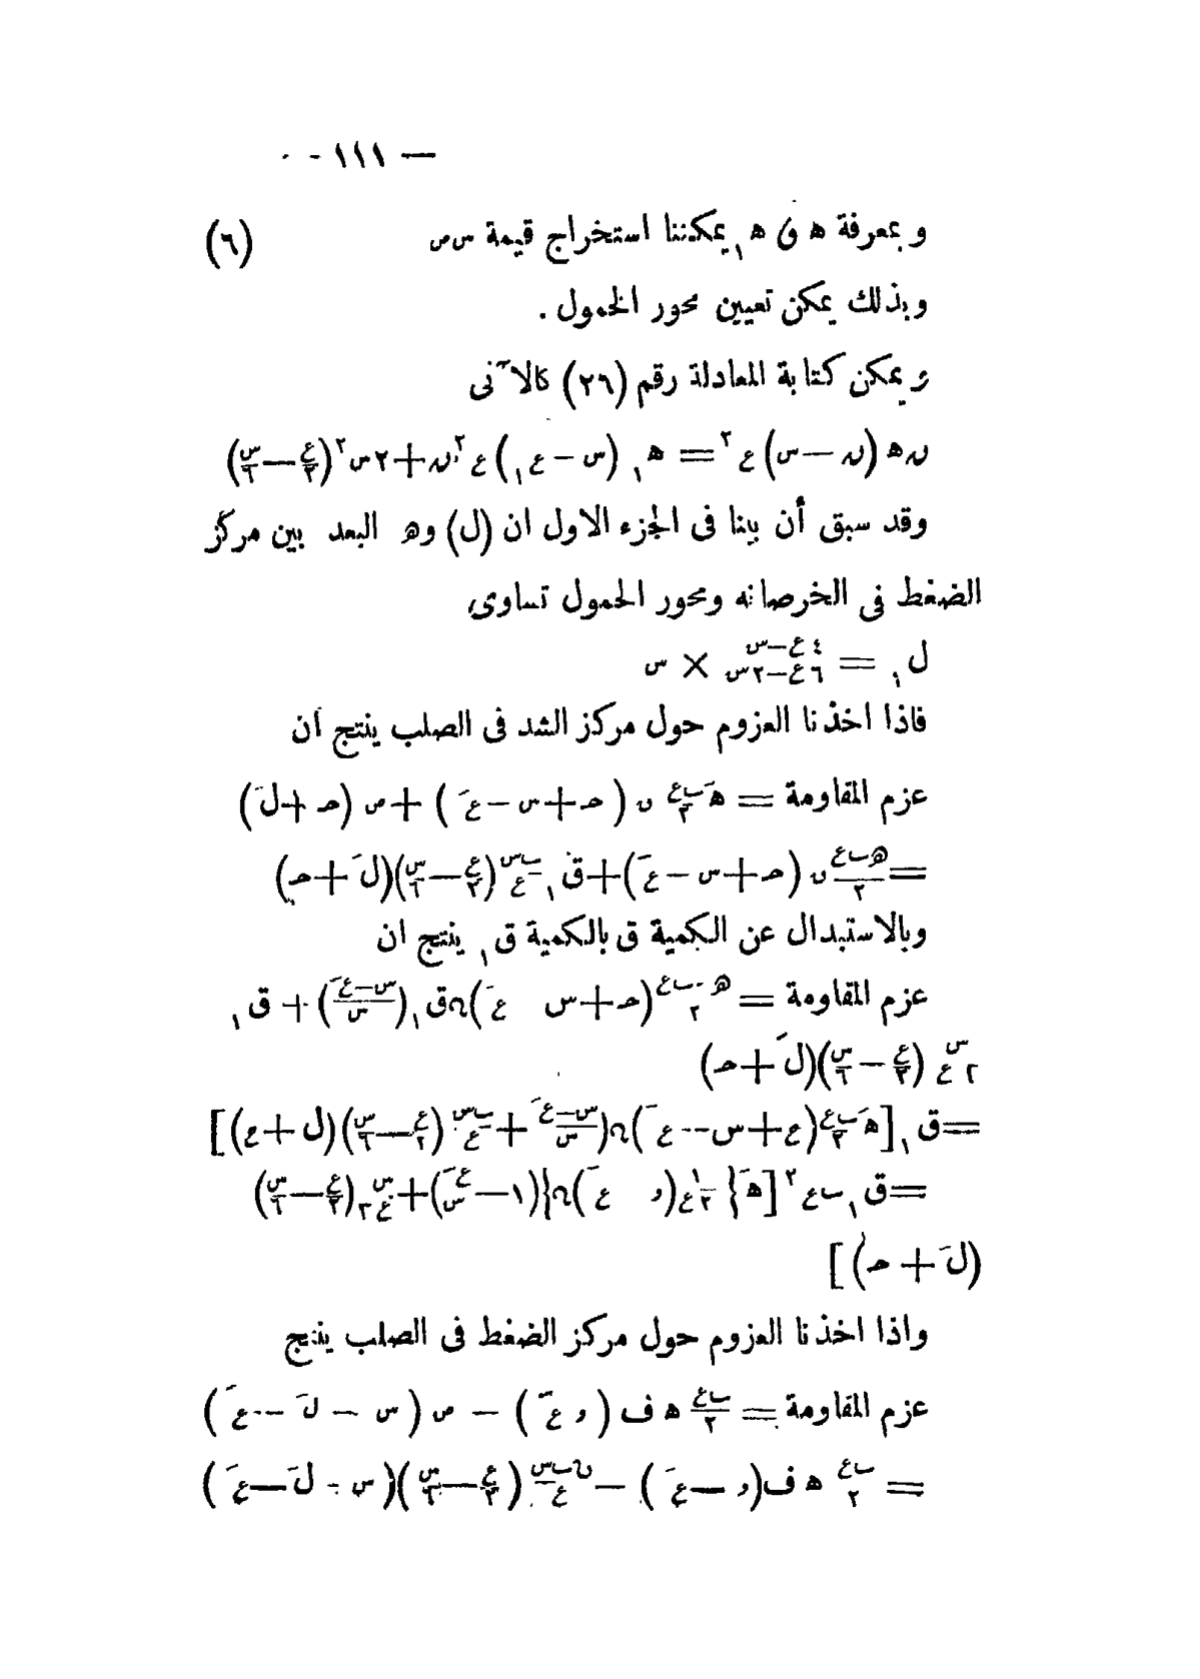 — ١١١ -
وبمعرفة ه ق ه١ يمكننا استخراج قيمة س ص (٦)
وبذلك يمكن تعيين محور الخمول .
ويمكن كتابة المعادلة رقم (٢٦) كالآتى
ن ه (ن — س) ع٢ = ه١ (س — ع١) ع٢ ن + ٢ س٢ (ع/٢ — س/٦)
وقد سبق أن بينا فى الجزء الاول ان (ل) وهو البعد بين مركز
الضغط فى الخرصانه ومحور الخمول تساوى
ل١ = ٤ع—س/٦ع—٢س × س
فاذا اخذنا العزوم حول مركز الشد فى الصلب ينتج ان
عزم المقاومة = هَ ب ع/٢ ن (حـ + س — عَ) + ص (حـ + لَ)
= ه ب ع/٢ ن (حـ + س — عَ) + ق١ ب س/ع (ع/٢ — س/٦)(لَ + حـ)
وبالاستبدال عن الكمية ق بالكمية ق١ ينتج ان
عزم المقاومة = ه ب ع/٢ (حـ + س عَ) ن ق١ (س—عَ/س) + ق١
س/٢ع (ع/٢ — س/٦)(لَ + حـ)
= ق١ [هَ ب ع/٢ (ع + س — عَ) ن (س—عَ/س + ب س/ع (ع/٢ — س/٦)(ل + ع)]
= ق١ ب ع٢ [هَ{١/٢ع (و عَ) ن}(١ — عَ/س) + س/ع٣ (ع/٢ — س/٦)
(لَ + حـ)]
واذا اخذنا العزوم حول مركز الضغط فى الصلب ينتج
عزم المقاومة = ب ع/٢ ه ف (و عَ) — ص (س — لَ — عَ)
= ب ع/٢ ه ف (و — عَ) — ق ب س/ع (ع/٢ — س/٦)(س - لَ — عَ)